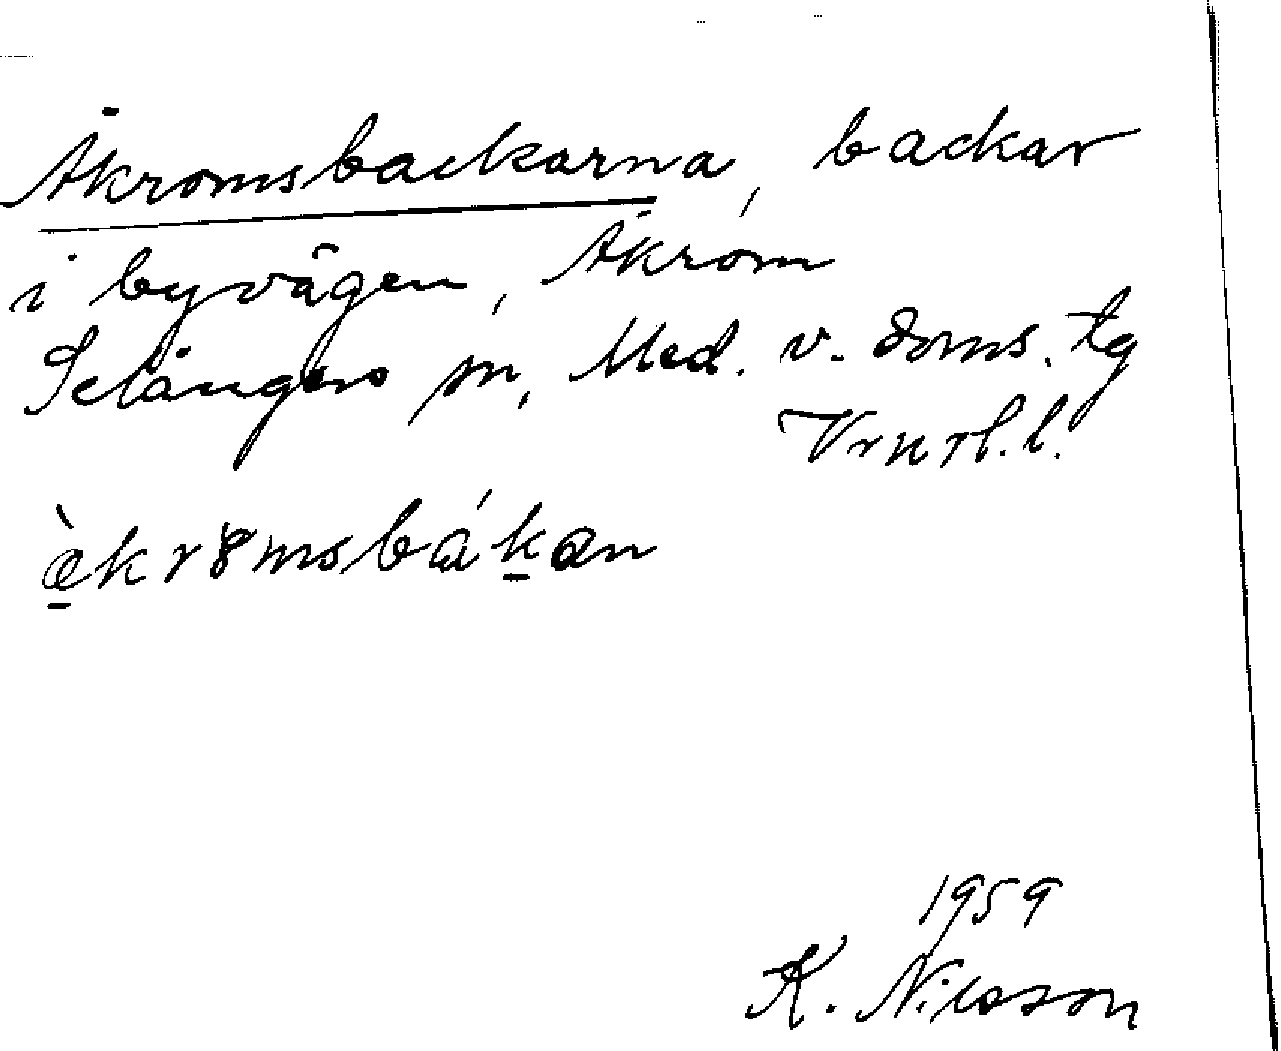 Åkromsbackarna, backar
i byvägen, Åkrom
Selångers sn, Med. v. doms. tg
Vrnrl. l.
æ̀kr8msbákan
1959
K. Nilsson